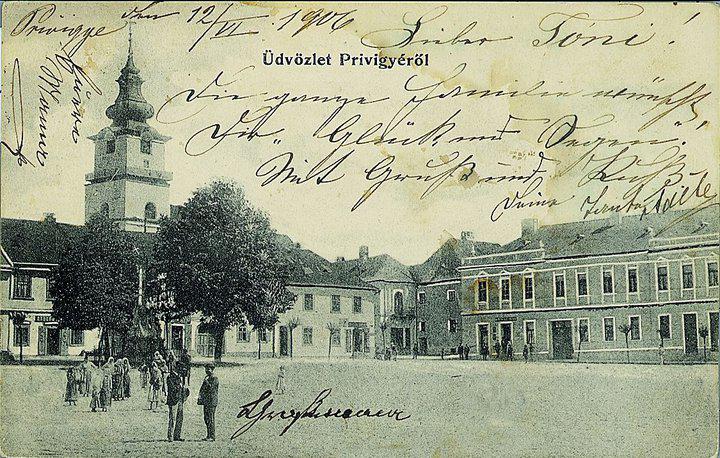 Privigye den 12/VI. 1906
Lieber Toni!
Üdvözlet Privigyéről
Die ganze Familie wünscht
Dir „Glück und Segen".
Mit Gruß und Kuß
Deine Tante Adele